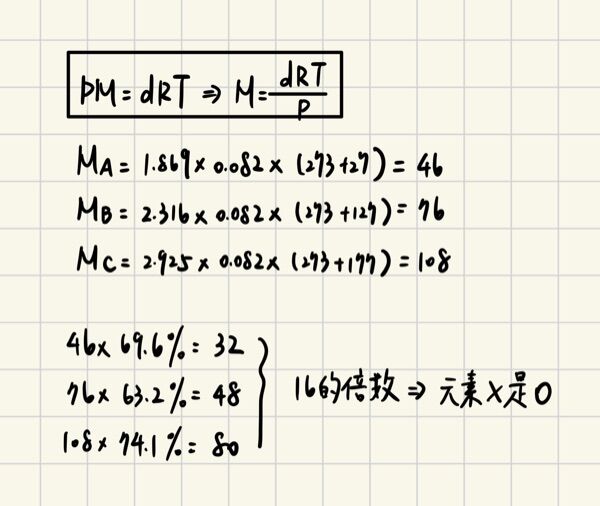 PM = dRT ⇒ M = dRT/P
MA = 1.869 × 0.082 × (273+27) = 46
MB = 2.316 × 0.082 × (273+127) = 76
MC = 2.925 × 0.082 × (273+177) = 108
46 × 69.6% = 32
76 × 63.2% = 48
108 × 74.1% = 80
16的倍数 ⇒ 元素X是O